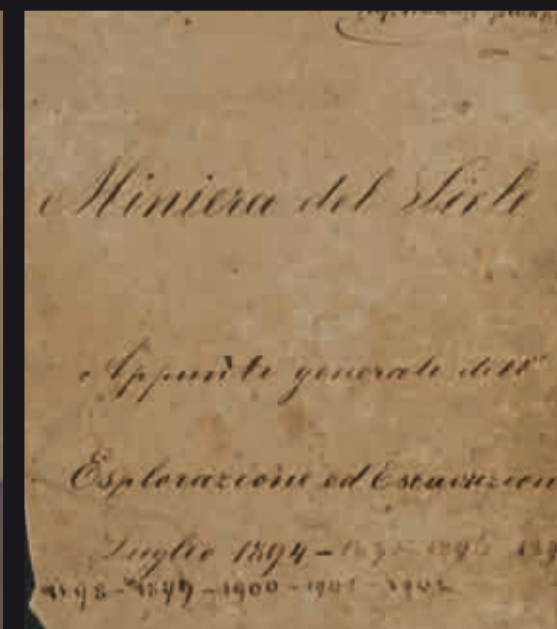 Miniera del Siele
Appunti generali dell'
Esplorazione ed Escavazion
Luglio 1894 - 1895 - 1896
1898 - 1899 - 1900 - 1901 - 1902